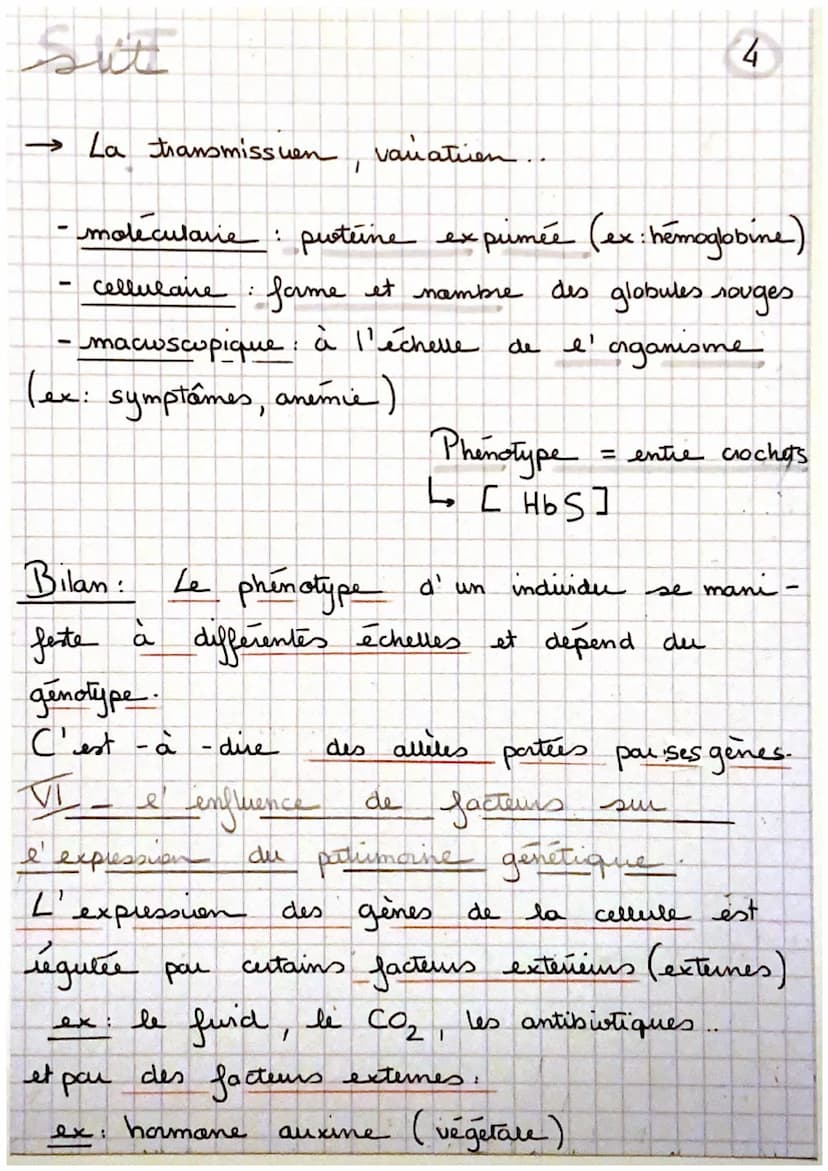 SVT
4
→ La transmission, variation..
- moléculaire : protéine exprimée (ex: hémoglobine)
- cellulaire : forme et nombre des globules rouges
- macroscopique : à l'échelle de l'organisme
(ex: symptômes, anémie)
Phénotype = entre crochets
↳ [HbS]
Bilan : Le phénotype d'un individu se mani-
feste à différentes échelles et dépend du
génotype.
C'est-à-dire des allèles portées par ses gènes.
VI - l'influence de facteurs sur
l'expression du patrimoine génétique.
L'expression des gènes de la cellule est
régulée par certains facteurs extérieurs (externes)
ex: le froid, le CO2, les antibiotiques..
et par des facteurs externes :
ex: hormone auxine (végétale)